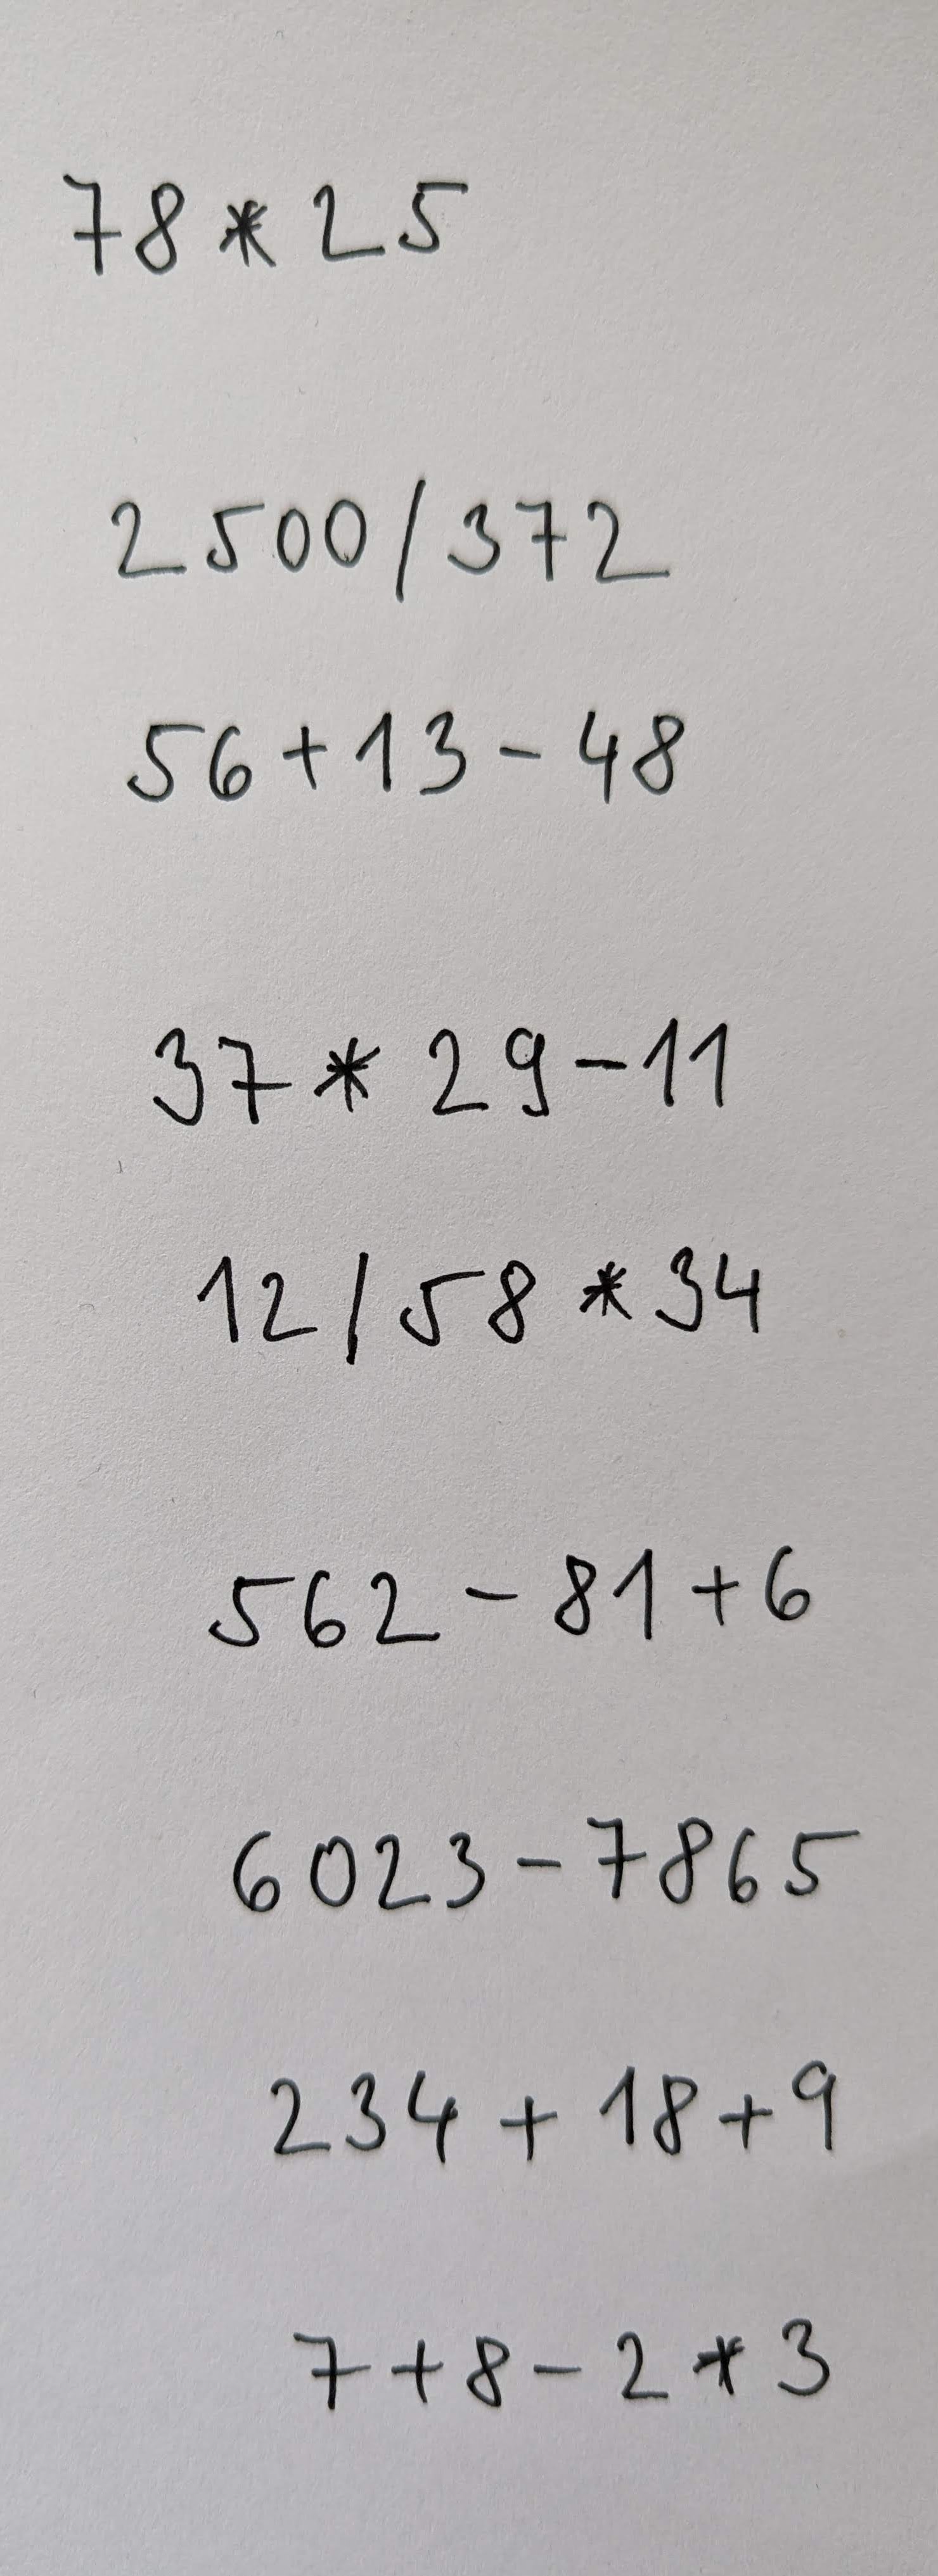 78*25
2500/372
56+13-48
37*29-11
12/58*34
562-81+6
6023-7865
234+18+9
7+8-2*3